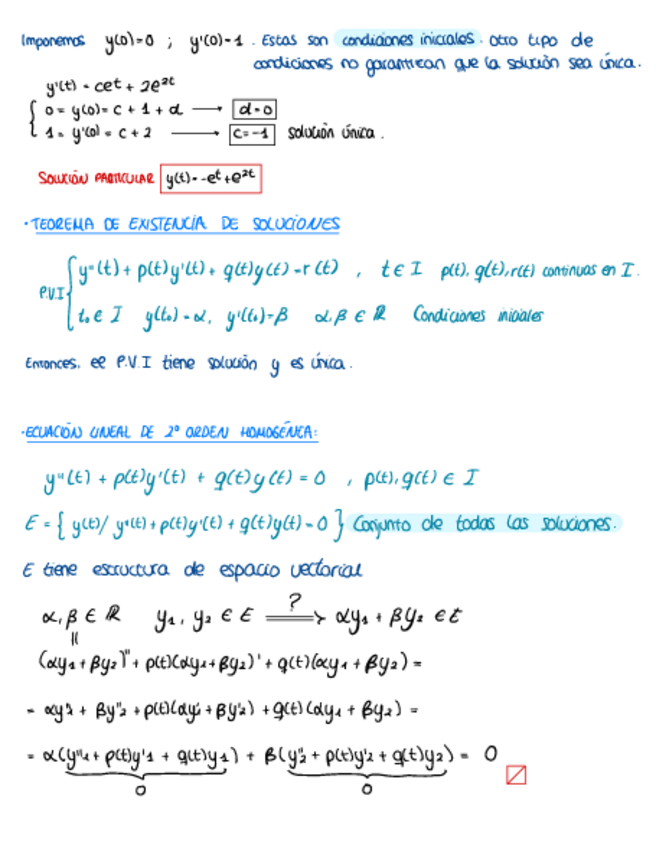 Imponemos y(0)=0 ; y'(0)=1. Estas son condiciones iniciales. otro tipo de
condiciones no garantizan que la solución sea única.
y'(t) = ce^t + 2e^2t
{ 0 = y(0) = c + 1 + d → d=0
1 = y'(0) = c + 2 → c=-1 solución única.
SOLUCIÓN PARTICULAR y(t)=-e^t+e^2t
· TEOREMA DE EXISTENCIA DE SOLUCIONES
P.V.I { y''(t) + p(t)y'(t) + q(t)y(t) = r(t) , t ∈ I p(t), q(t), r(t) continuas en I.
t₀ ∈ I y(t₀) = α, y'(t₀) = β α, β ∈ ℝ Condiciones iniciales
Entonces, el P.V.I tiene solución y es única.
· ECUACIÓN LINEAL DE 2º ORDEN HOMOGÉNEA:
y''(t) + p(t)y'(t) + q(t)y(t) = 0 , p(t), q(t) ∈ I
E = { y(t)/ y''(t) + p(t)y'(t) + q(t)y(t) = 0 } Conjunto de todas las soluciones.
E tiene estructura de espacio vectorial
α, β ∈ ℝ y₁, y₂ ∈ E ⟹? αy₁ + βy₂ ∈ E
=
(αy₁ + βy₂)'' + p(t)(αy₁ + βy₂)' + q(t)(αy₁ + βy₂) =
= αy''₁ + βy''₂ + p(t)(αy'₁ + βy'₂) + q(t)(αy₁ + βy₂) =
= α(y''₁ + p(t)y'₁ + q(t)y₁) + β(y''₂ + p(t)y'₂ + q(t)y₂) = 0
0 0